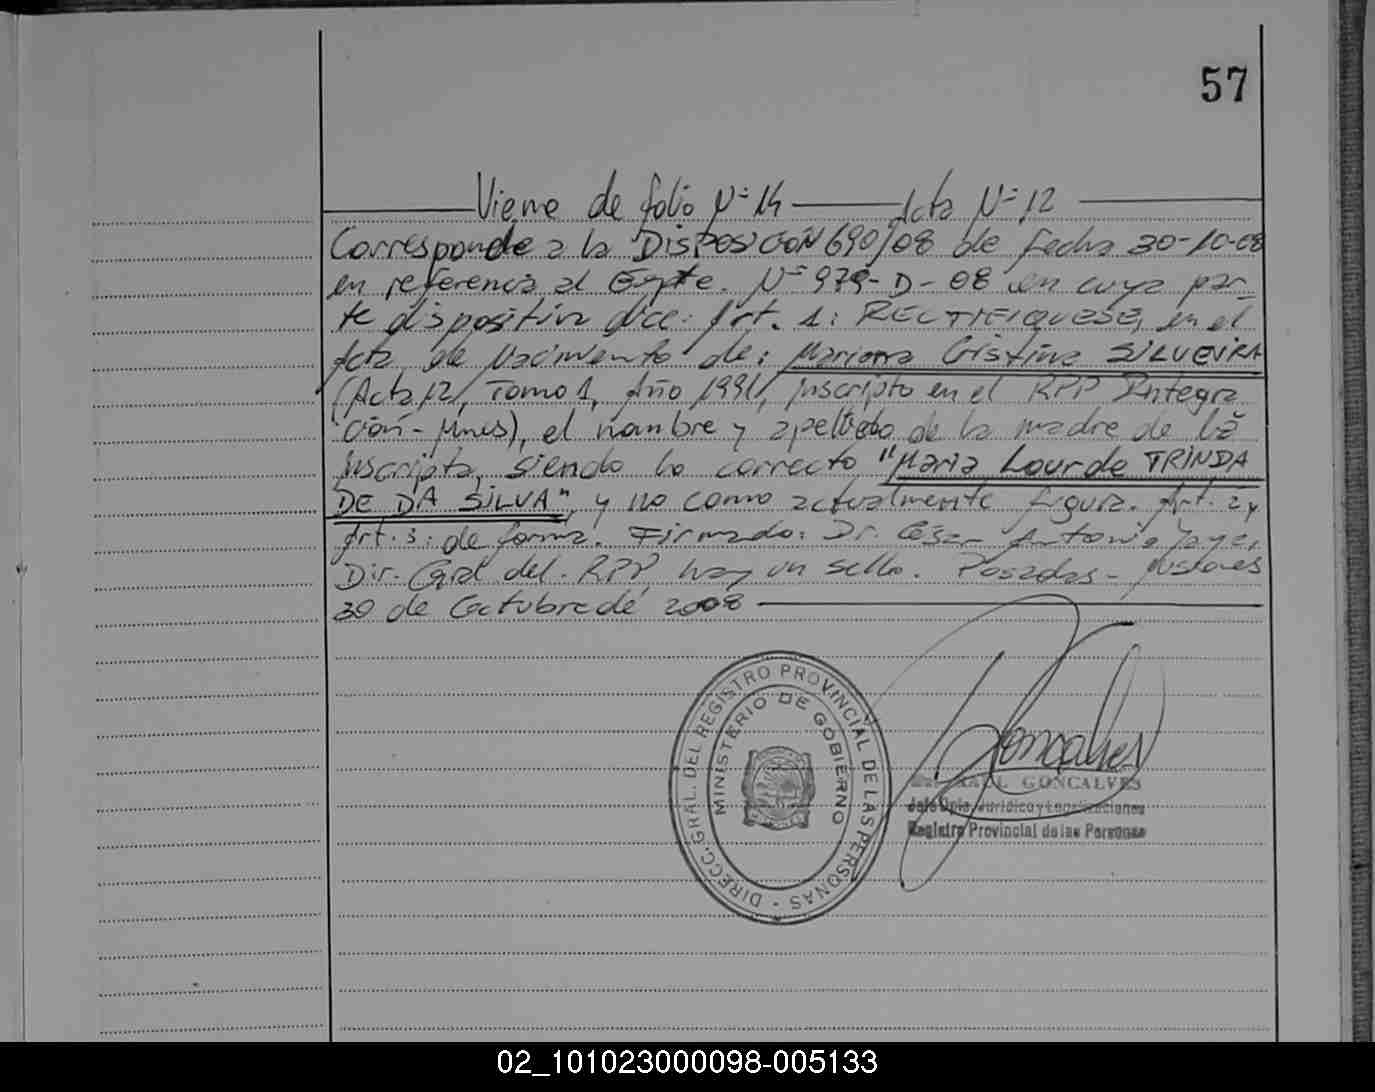 57
Viene de folio Nº 14 — Acta Nº 12
Corresponde a la DISPOSICIÓN 690/08 de fecha 30-10-08
en referencia al Expte. Nº 979-D-08 en cuya par-
te dispositiva dice: Art. 1: RECTIFIQUESE, en el
Acta de Nacimiento de: Mariana Cristina SILVEIRA
(Acta 12, Tomo 1, Año 1991, inscripto en el RPP Integra
ción-Mnes), el nombre y apellido de la madre de la
inscripta, siendo lo correcto "Maria Lourde TRINDA
DE DA SILVA", y no como actualmente figura. Art. 2 y
Art. 3: de forma. Firmado: Dr. César Antonio
Dir. Gral del. RPP, hay un sello. Posadas - Misiones
30 de Octubre de 2008
DIRECC. GRAL. DEL REGISTRO PROVINCIAL DE LAS PERSONAS -
MINISTERIO DE GOBIERNO
Goncalves
RAUL GONCALVES
Jefe Dpto. Jurídico y Legalizaciones
Registro Provincial de las Personas
02_101023000098-005133